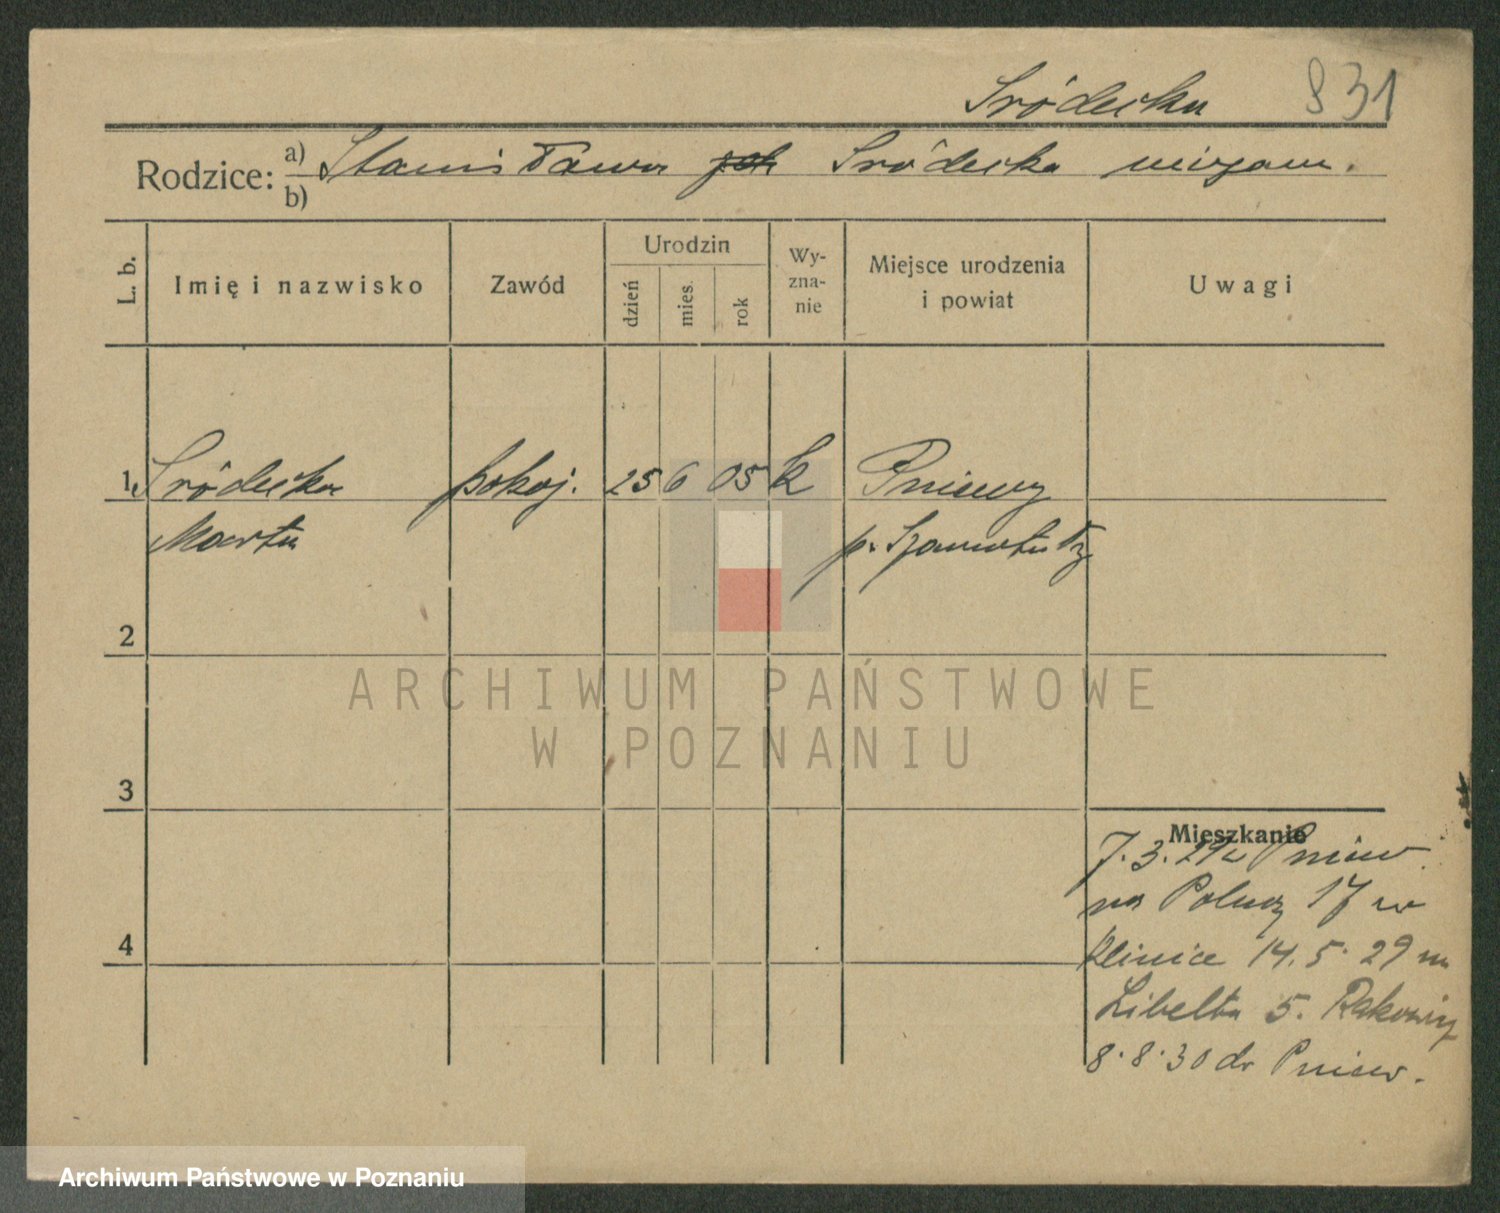 Sródecka 831
Rodzice: a) Stanisława Sródecka niezam.
b)
L. b. Imię i nazwisko Zawód Urodzin dzień mies. rok Wy-zna-nie Miejsce urodzenia i powiat Uwagi
1 Sródecka pokoj. 25 6 05 k Pniewy
Marta p. Szamotuły
2
ARCHIWUM PAŃSTWOWE
W POZNANIU
3
Mieszkanie
7. 3. 29 z Pniew
na Polnej 17 w
klinice 14. 5. 29 na
Libelta 5.
8. 8. 30 do Pniew.
4
Archiwum Państwowe w Poznaniu